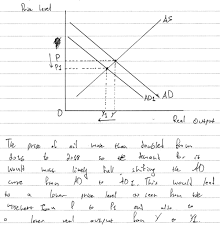 Price Level
AS
P
P1
AD
AD1
O
Y1 Y
Real Output
The price of oil more than doubled from
to 2008 so demand for it
would most likely fall shifting the AD
curve from AD to AD1. This would lead
to a lower price level as seen from the
from P to P1 and also to
a lower real output from Y to Y1.